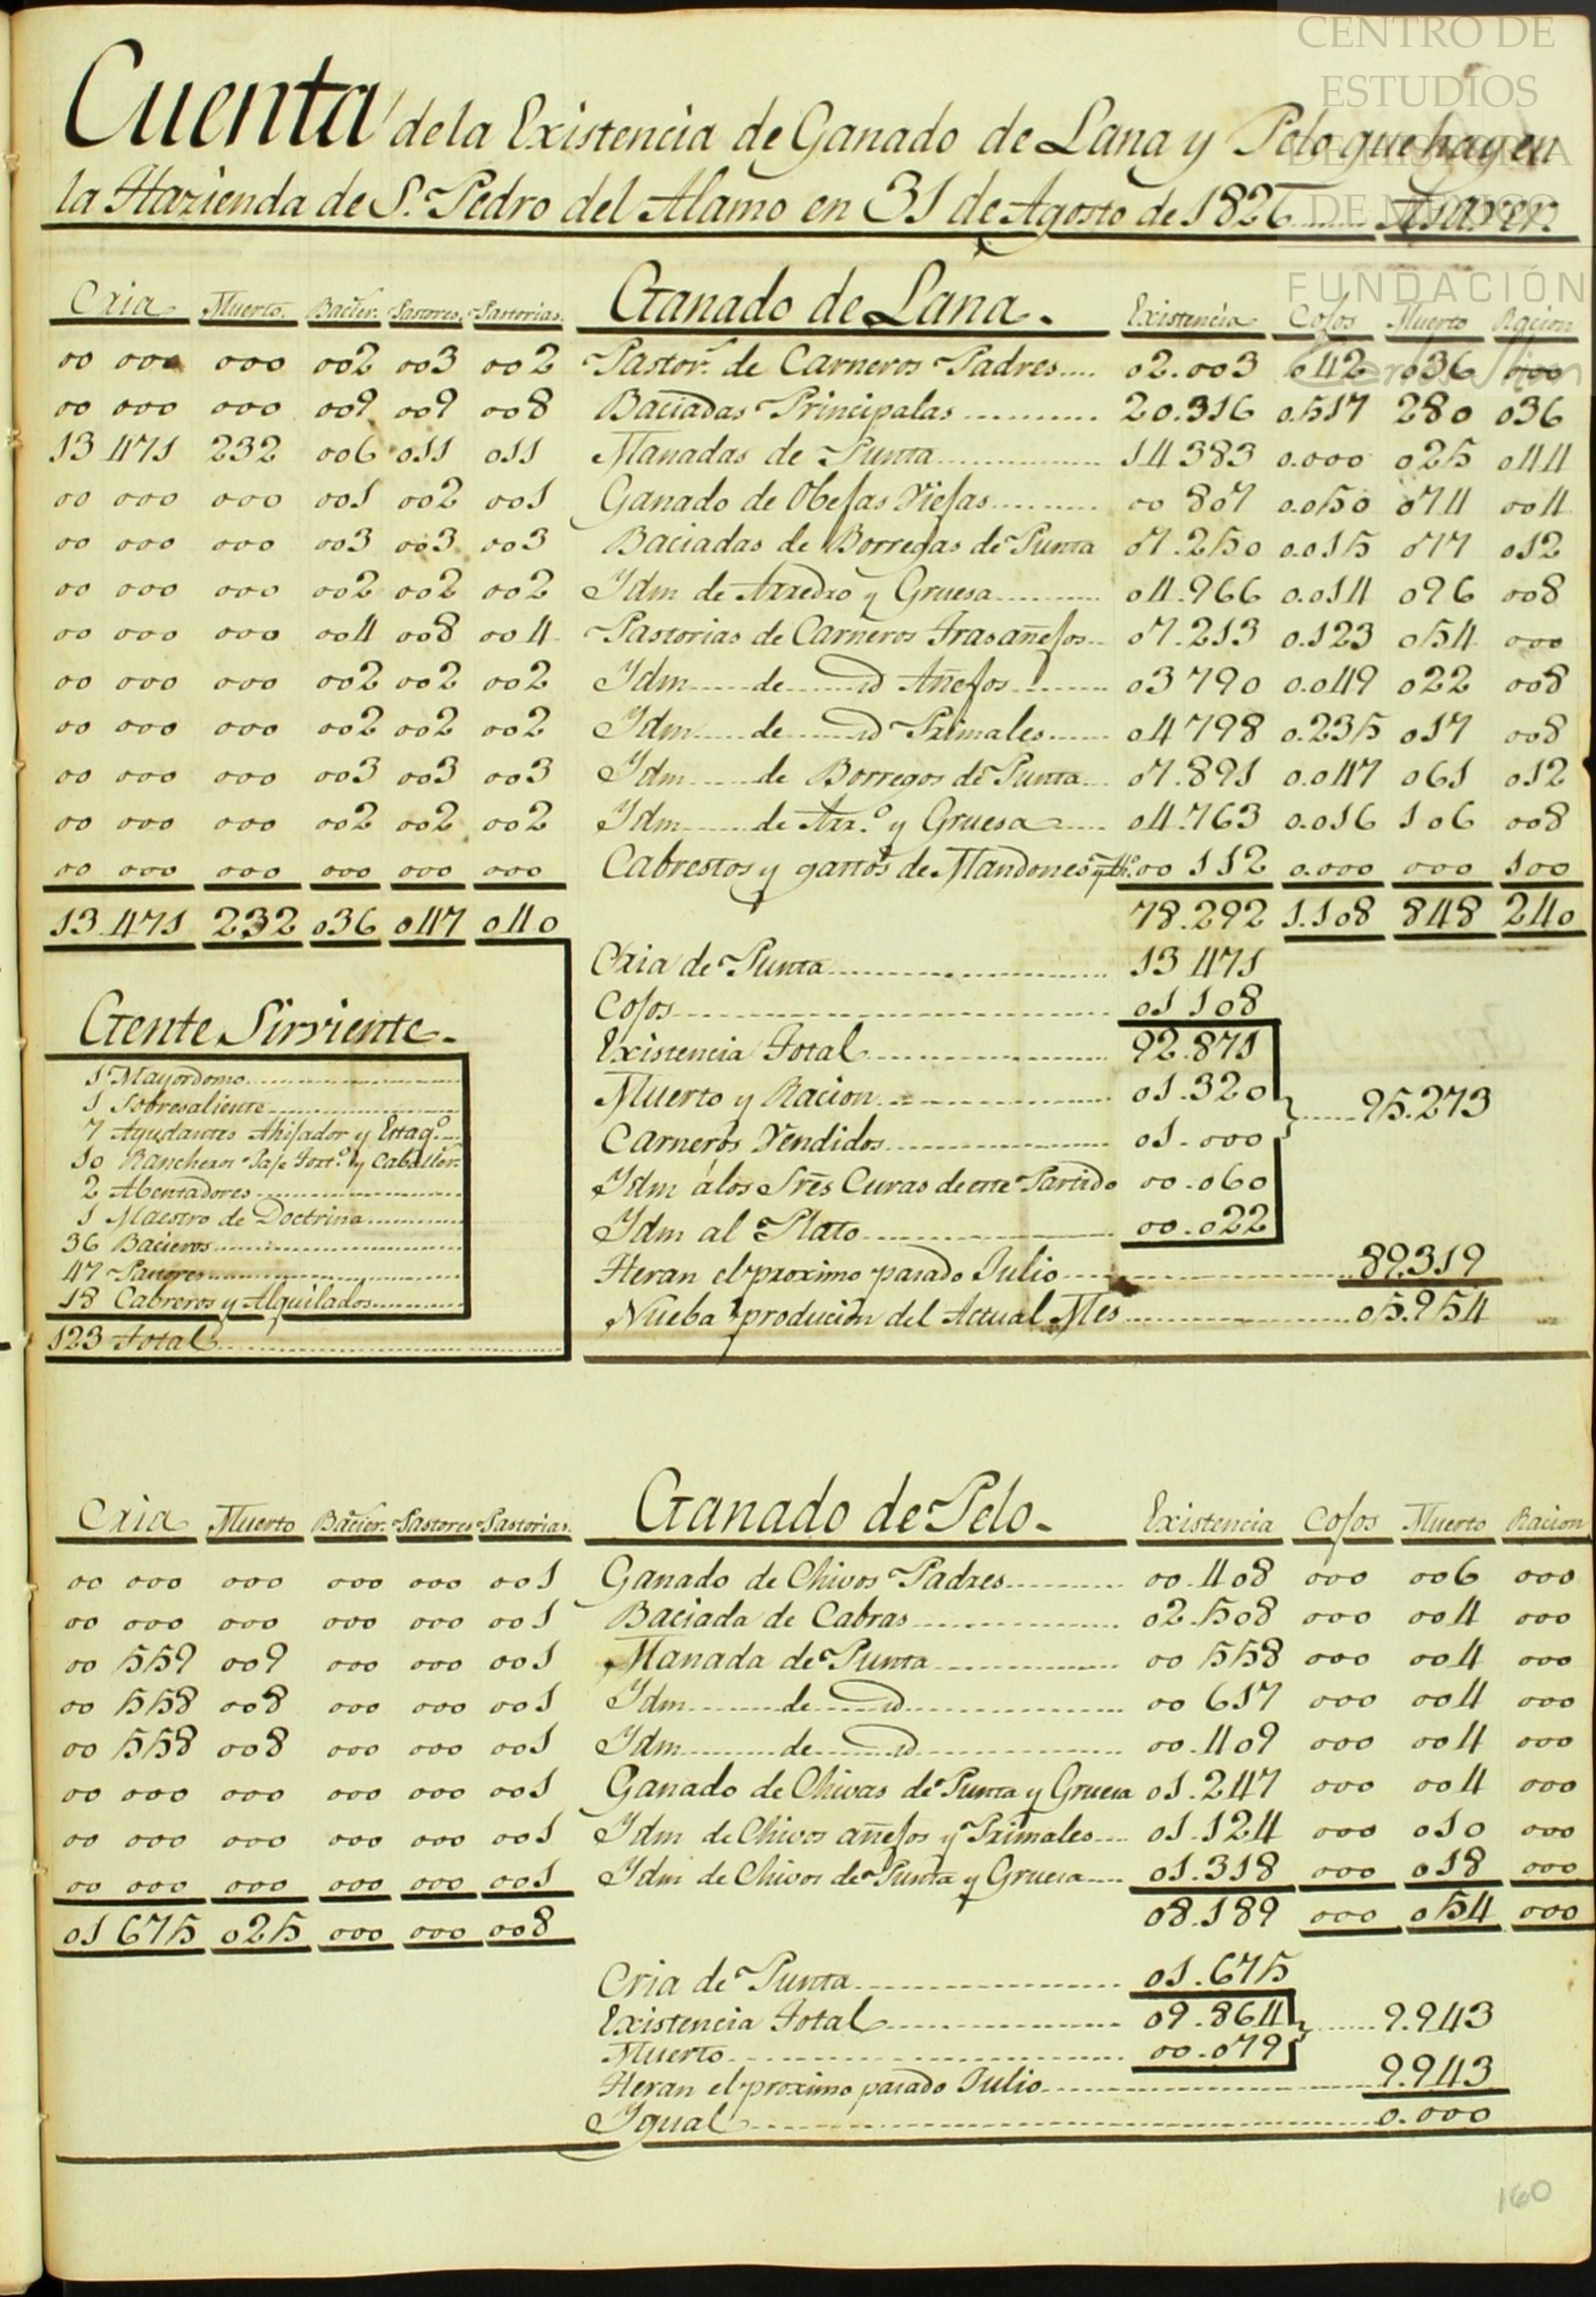 CENTRO DE
ESTUDIOS
DE HISTORIA
DE MÉXICO
FUNDACIÓN
Carlos Slim
Cuenta de la Existencia de Ganado de Lana y Pelo que hay en
la Hazienda de S.n Pedro del Alamo en 31 de Agosto de 1826 Asaver.
Cria Muerto. Bacier. Pastores. Pastorias. Ganado de Lana. Existencia Cojos Muerto Racion
00 000 000 002 003 002 Pastor.s de Carneros Padres.... 02.003 042 036 000
00 000 000 009 009 008 Baciadas Principalas 20.316 0.517 280 036
13 471 232 006 011 011 Manadas de Punta 14383 0.000 025 044
00 000 000 001 002 001 Ganado de Obejas Viejas 00 807 0.050 074 004
00 000 000 003 003 003 Baciadas de Borregas de Punta 07.250 0.015 077 012
00 000 000 002 002 002 Ydm de Arredro y Gruesa 04.966 0.014 096 008
00 000 000 004 008 004 Pastorias de Carneros Trasañejos 07.213 0.123 054 000
00 000 000 002 002 002 Ydm de id Añejos 03790 0.049 022 008
00 000 000 002 002 002 Ydm de id Primales 04798 0.235 017 008
00 000 000 003 003 003 Ydm de Borregos de Punta 07.891 0.047 061 012
00 000 000 002 002 002 Ydm de Arr.o y Gruesa 04.763 0.016 106 008
00 000 000 000 000 000 Cabrestos y garros de Mandones 00 112 0.000 000 100
13 471 232 036 047 040 78.292 1.108 848 240
Cria de Punta 13 471
Cojos 01108
Existencia Total 92.871
Muerto y Racion 01.320 95.273
Carneros Vendidos 01.000
Ydm á los Sres Curas de este Partido 00.060
Ydm al Plato 00.022
Heran el proximo pasado Julio 89.319
Nueba produción del Actual Mes 05.954
Gente Sirviente.
1 Mayordomo
1 Sobresaliente
7 Ayudantes Ahijador y Estaq.o
10 Rancheros Paje Fort.o y Caballer.
2 Abentadores
1 Maestro de Doctrina
36 Bacieros
47 Pastores
18 Cabreros y Alquilados
123 Total
Cria Muerto Bacier. Pastores Pastorias. Ganado de Pelo. Existencia Cojos Muerto Racion
00 000 000 000 000 001 Ganado de Chivos Padres 00.408 000 006 000
00 000 000 000 000 001 Baciada de Cabras 02.508 000 004 000
00 559 009 000 000 001 Manada de Punta 00 558 000 004 000
00 558 008 000 000 001 Ydm de id 00 617 000 004 000
00 558 008 000 000 001 Ydm de id 00.409 000 004 000
00 000 000 000 000 001 Ganado de Chivas de Punta y Gruesa 01.247 000 004 000
00 000 000 000 000 001 Ydm de Chivos añejos y Primales 01.124 000 010 000
00 000 000 000 000 001 Ydm de Chivos de Punta y Gruesa 01.318 000 018 000
01 675 025 000 000 008 08.189 000 054 000
Cria de Punta 01.675
Existencia Total 09.864 9.943
Muerto 00.079
Heran el proximo pasado Julio 9.943
Ygual 0.000
160